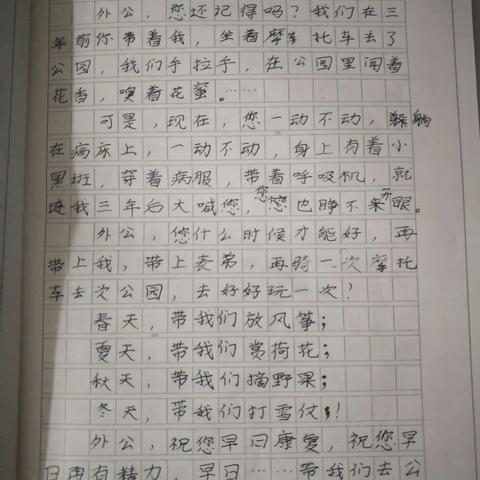 外公，您还记得吗？我们在三
年前你带着我，坐着摩托车去了
公园，我们手拉手，在公园里闻着
花香，嗅着花蜜。……
可是，现在，您一动不动，躺
在病床上，一动不动，身上有着小
黑斑，穿着病服，带着呼吸机，就
连我三年后大喊您，您也睁不开眼。
外公，您什么时候才能好，再
带上我，带上表弟，再骑一次摩托
车去次公园，去好好玩一次！
春天，带我们放风筝；
夏天，带我们赏荷花；
秋天，带我们摘野果；
冬天，带我们打雪仗！
外公，祝您早日康复，祝您早
日再有精力，早日……带我们去公